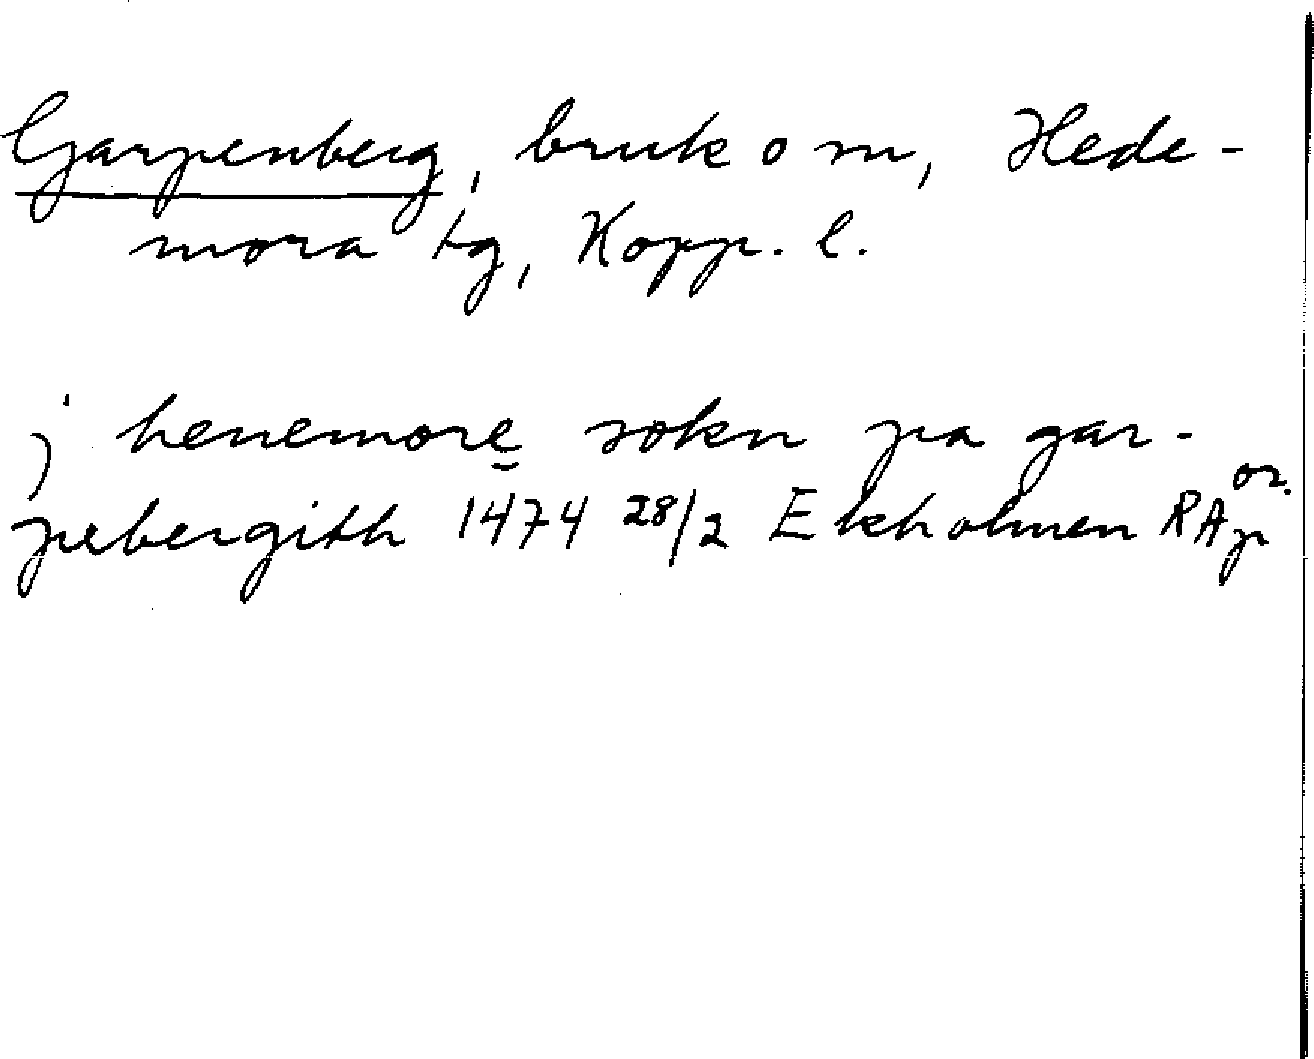 Garpenberg, bruk o m, Hede-
mora tg, Kopp. l.
j henemore sokn pa gar-
pebergith 1474 28/2 Ekholmen RAp or.